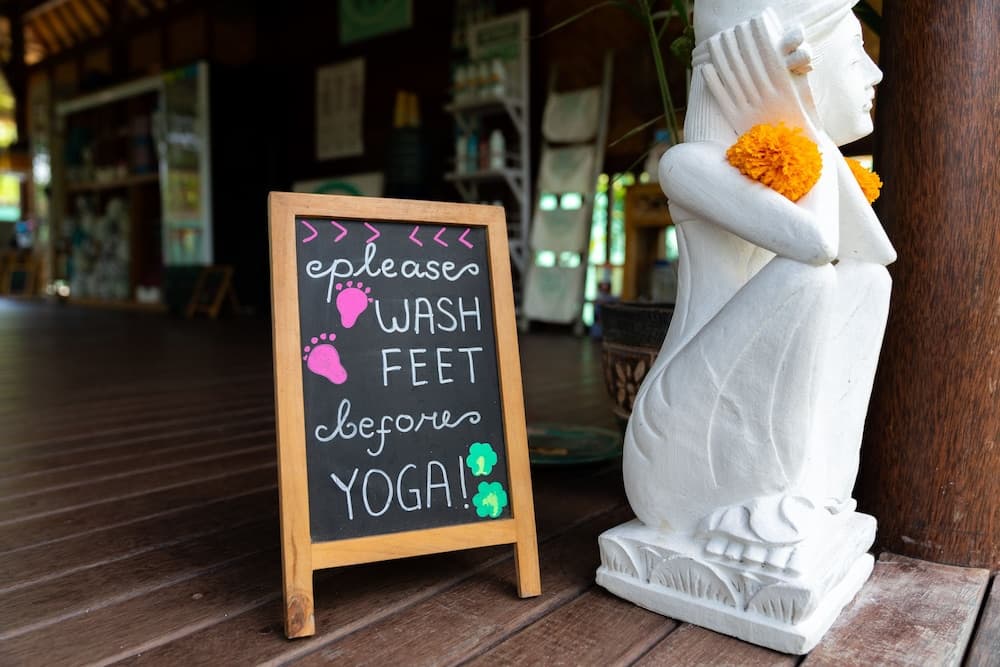 > > > < < <
please
WASH
FEET
before
YOGA!